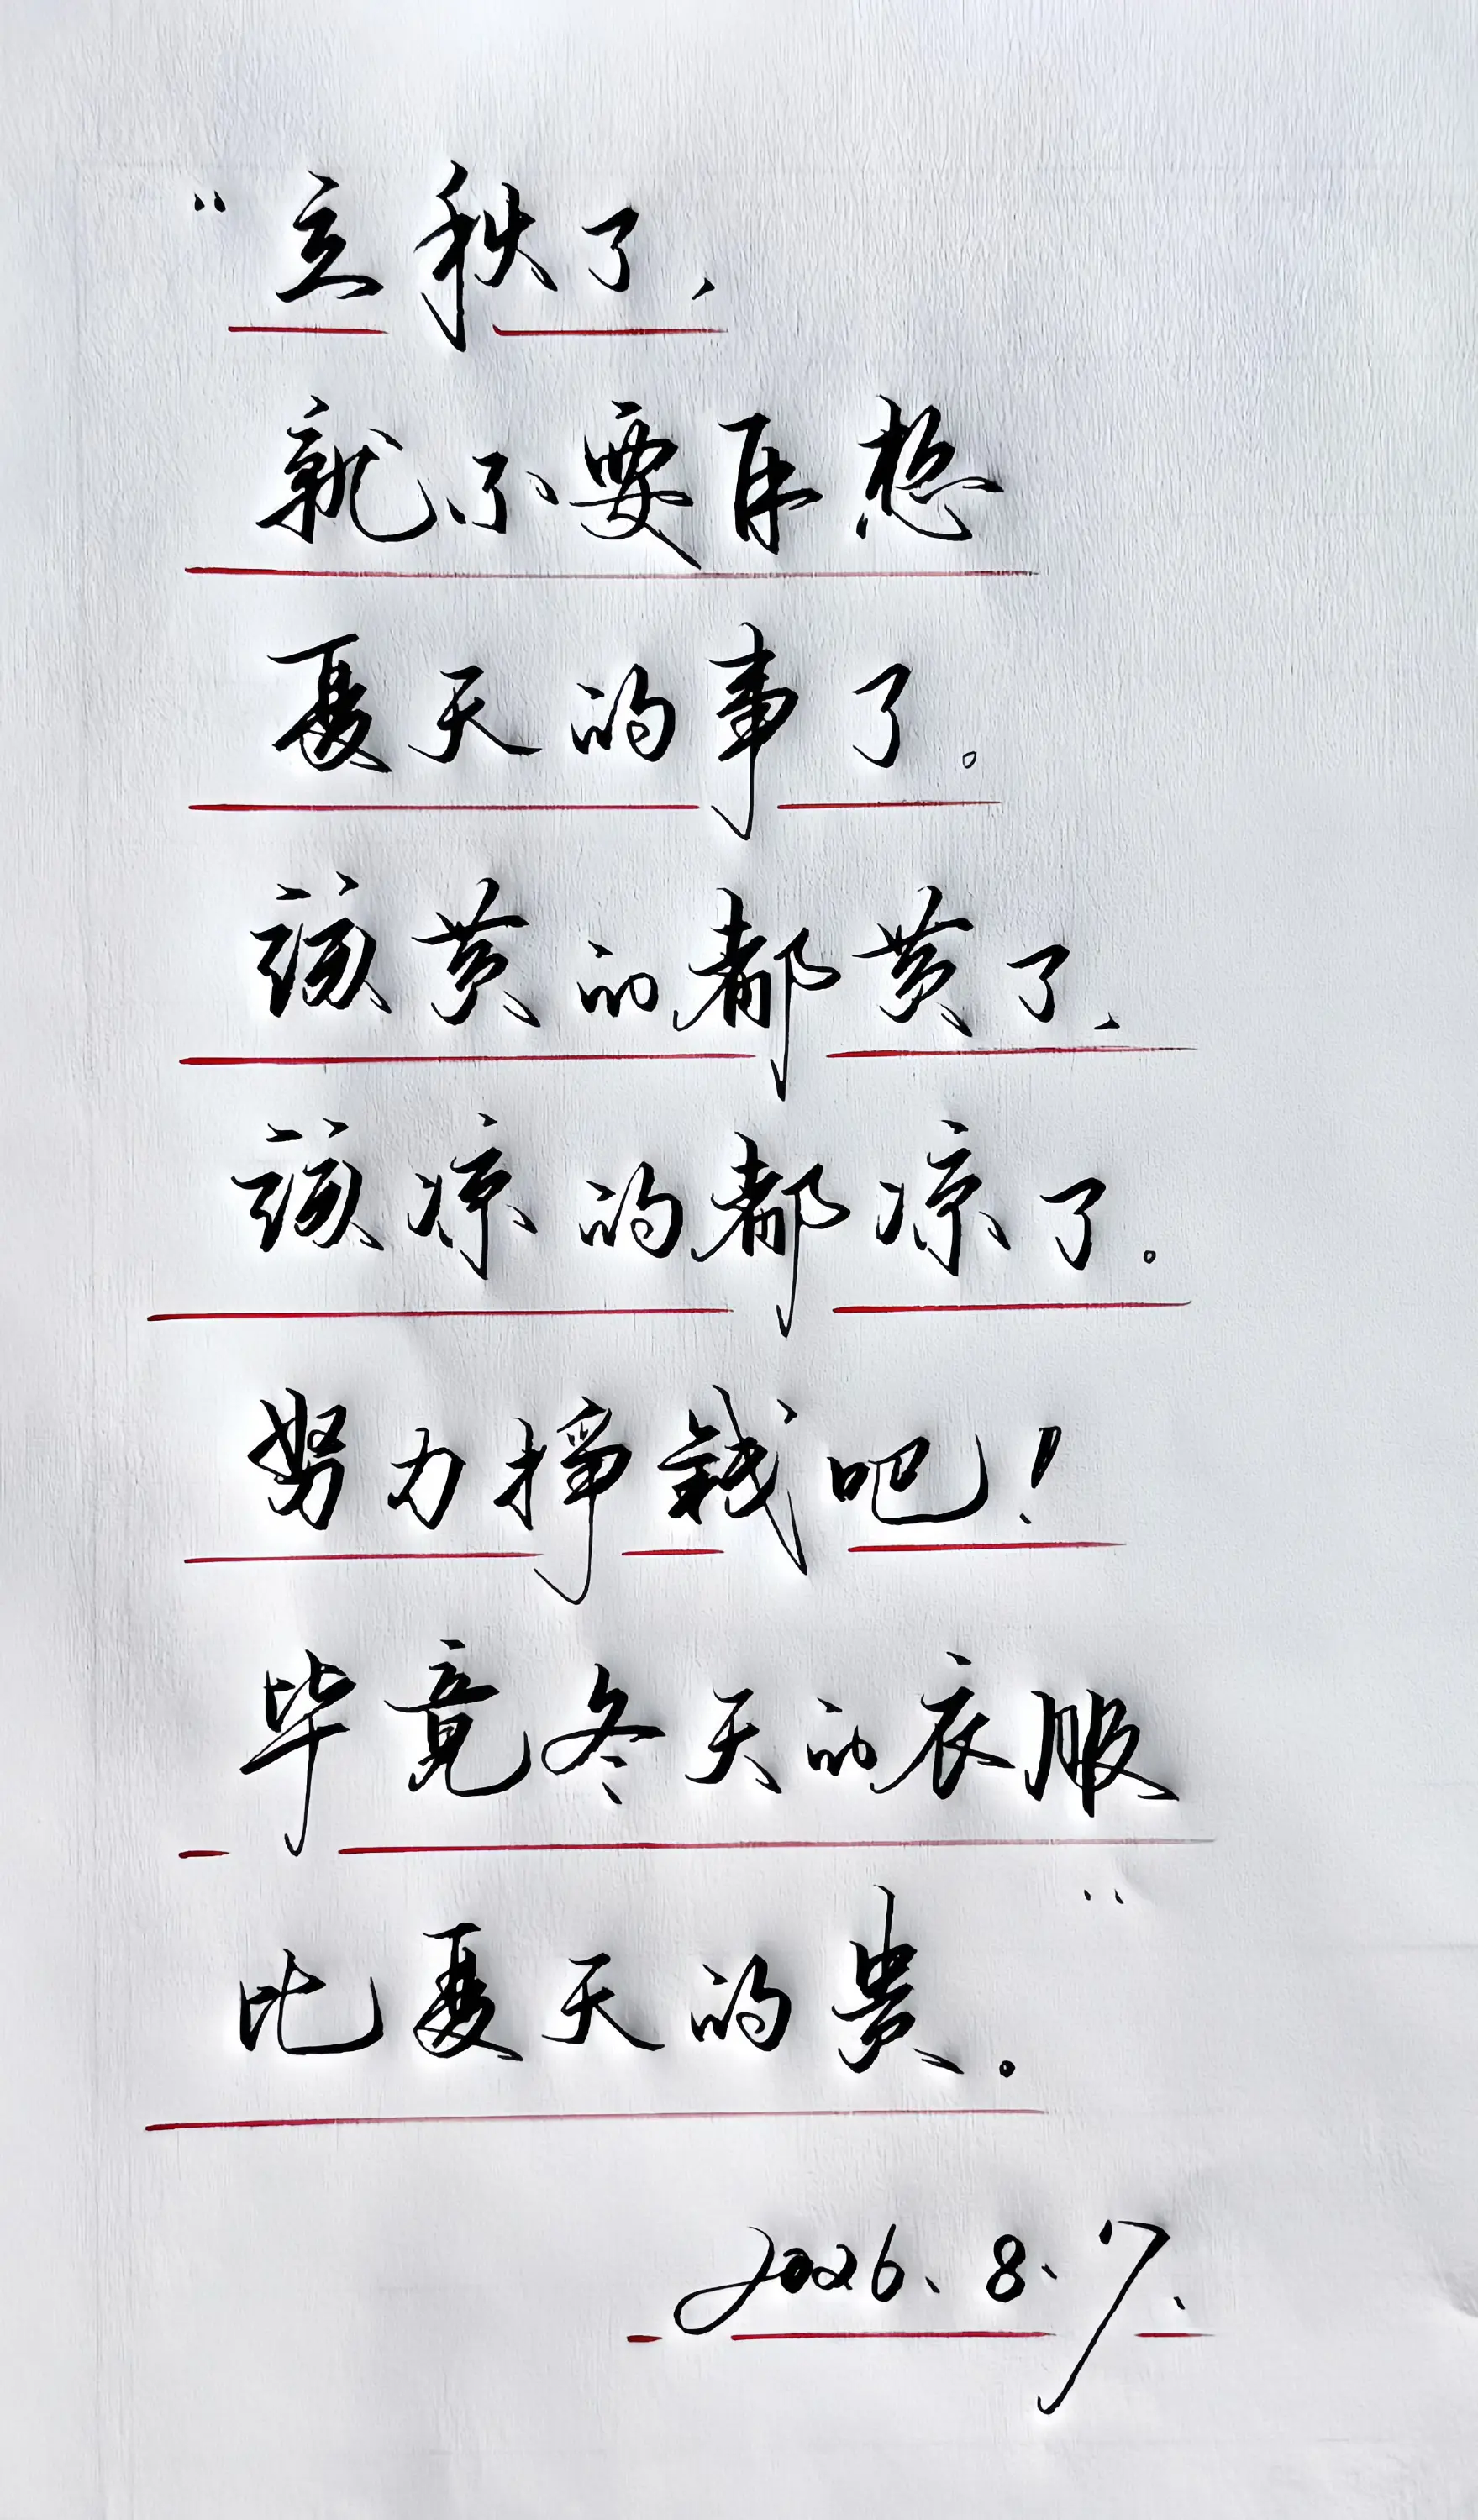 “立秋了，
就不要再想
夏天的事了。
该黄的都黄了，
该凉的都凉了。
努力挣钱吧！
毕竟冬天的衣服
比夏天的贵。”
2026.8.7.